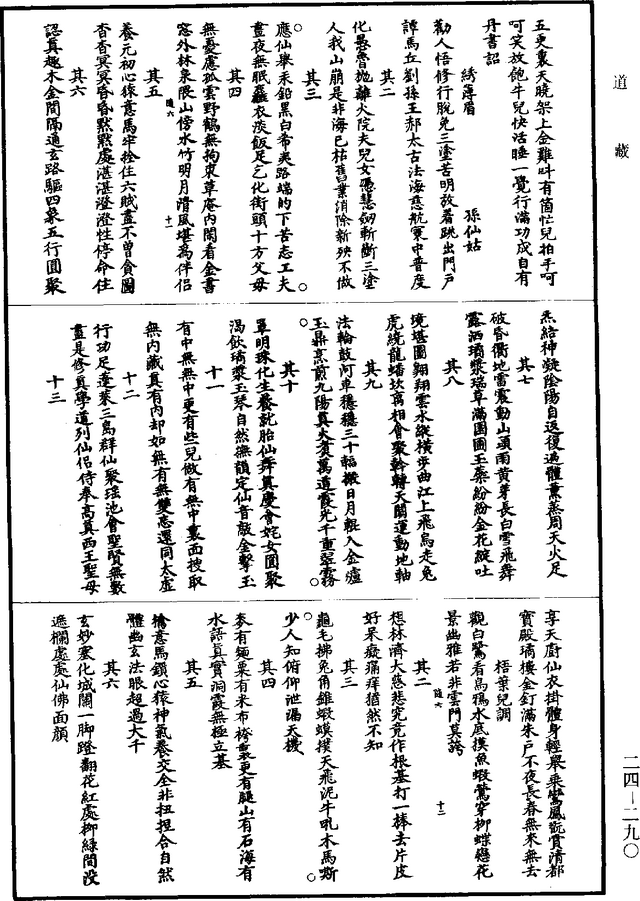 道藏
五更裏天曉架上金雞呌有箇忙兒拍手呵
可笑放飽牛兒快活睡一覺行滿功成自有
丹書詔
繡薄眉　孫仙姑
勸人悟修行脫免三塗苦明放着跳出門戶
譚馬丘劉孫王郝太古法海慈航寰中普度
化愚魯拋離火院夫兒女憑慧劒斬斷三塗
人我山崩是非海已枯舊業消除新殃不做
其三
應仙舉汞鉛黑白希夷路端的下苦志工夫
晝夜無眠麤衣淡飯足乞化街頭十方父母
其四
無憂慮孤雲野鶴無拘束草庵內閑看金書
窓外林泉隈山傍水竹明月清風堪爲伴侶
隨六
十一
其五
養元初心猿意馬牢拴住六賊盡不曾貪圖
杳杳冥冥昏昏默默處湛湛澄澄性停命住
其六
認真趣木金間隔通玄路驅四象五行圓聚
炁結神凝陰陽自返復遍體薰蒸周天火足
其七
破昏衢地雷震動山頭雨黄芽長白雪飛舞
露洒瓊漿瑞草滿園圃玉蘂紛紛金花綻吐
其八
境堪圖翱翔雲水縱橫步曲江上飛烏走兔
虎繞龍蟠坎离相會聚斡轉天關運動地軸
其九
法輪鼓河車穩穩三十輻搬日月輥入金爐
玉鼎烹煎九陽真火煑萬道霞光千重翠霧
其十
罩明珠化生養就胎仙舞真慶會姹女圓聚
渴飲瓊漿玉琴自然無韻定仙音敲金擊玉
十一
有中無無中更有些兒做有無中裏面搜取
無內藏真有內却如無有無雙忘還同太虛
十二
行功足蓬萊三島群仙聚瑶池會聖賢無數
盡是修真學道列仙侣侍奉高真西王聖母
十三
享天廚仙衣掛體身輕舉乘鸞鳳翫賞清都
寶殿瓊樓金釘滿朱戶不夜長春無來無去
梧葉兒調
觀白鷺看烏鴉水底摸魚蝦鶯穿柳蝶戀花
景幽雅若非雲門莫誇
隨六
十二
其二
想林濟大慈悲究竟作根基打一棒去片皮
好呆癡痛痒猶然不知
其三
龜毛拂兔角錐蝦蟆撲天飛泥牛吼木馬嘶
少人知俯仰泄漏天機
其四
麥有麺粟有米布袴裏更有腿山有石海有
水語真實洞霞無極立基
其五
擒意馬鎖心猿神氣養交全非扭捏合自然
體幽玄法眼超過大千
其六
玄妙塞化城闊一脚蹬翻花紅處柳綠間沒
遮欄處處仙佛面顏
二四—二九〇